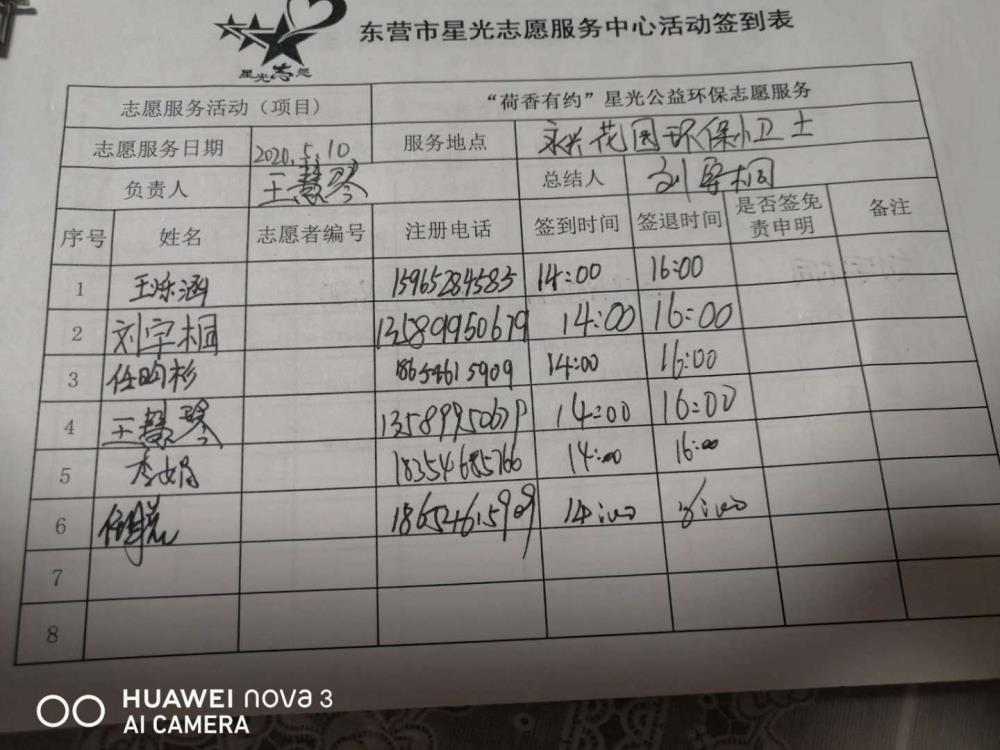 星光志愿
东营市星光志愿服务中心活动签到表
志愿服务活动（项目） “荷香有约”星光公益环保志愿服务
志愿服务日期 2020.5.10 服务地点 永兴花园环保小卫士
负责人 王慧琴 总结人 刘宇桐
序号 姓名 志愿者编号 注册电话 签到时间 签退时间 是否签免责申明 备注
1 王烁涵 15965284583 14:00 16:00
2 刘宇桐 14:00 16:00
3 任昀杉 18654615909 14:00 16:00
4 王慧琴 13589950679 14:00 16:00
5 李娟 18354685766 14:00 16:00
6 18654615909 14:00
7
8
HUAWEI nova 3
AI CAMERA